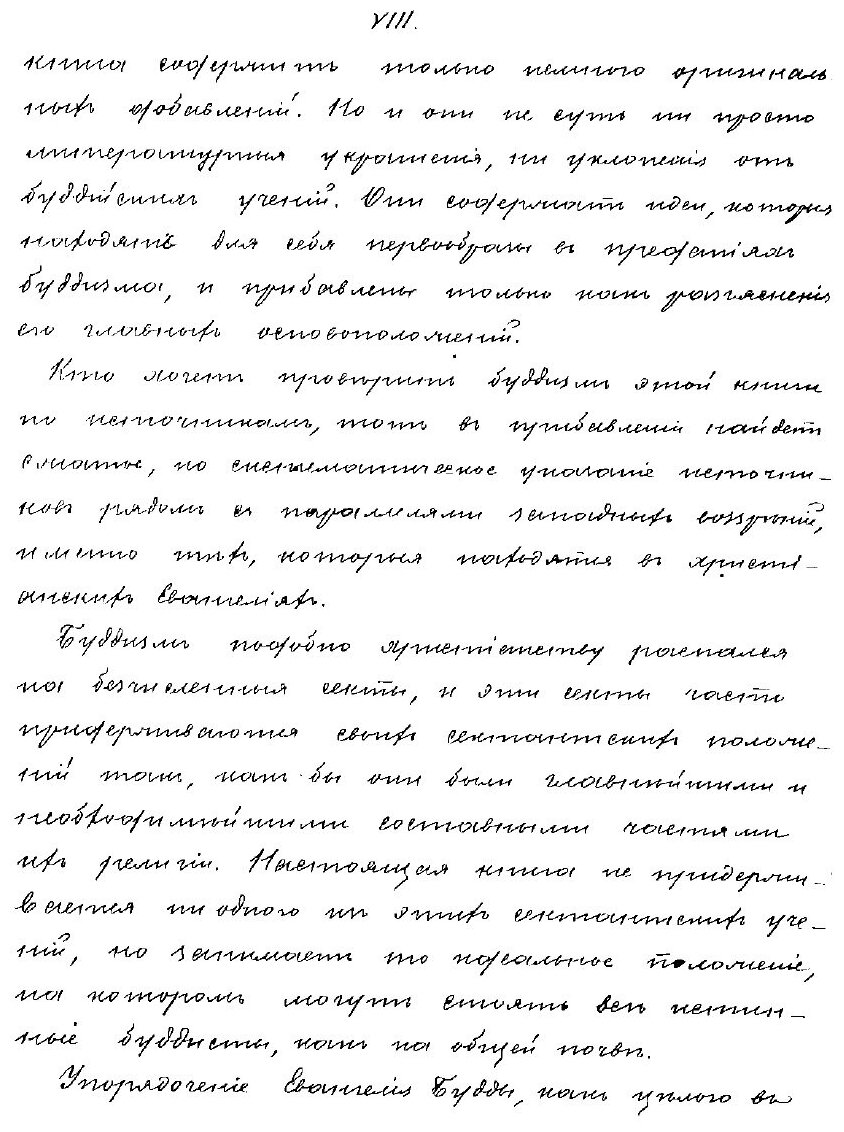 VIII.
книга содержитъ только немного оригиналь
ныхъ добавленій. Но и они не суть ни просто
литературныя украшенія, ни уклоненія отъ
буддійскихъ ученій. Они содержатъ идеи, которыя
находятъ для себя первообразы въ преданіяхъ
буддизма, и прибавлены только какъ разъясненія
его главныхъ основоположеній.
Кто хочетъ провѣрить буддизмъ этой книги
по источникамъ, тотъ въ прибавленіи найдетъ
сжатое, но систематическое указаніе источни-
ковъ рядомъ съ параллелями западныхъ воззрѣній,
именно тѣхъ, которыя находятся въ христі-
анскихъ Евангеліяхъ.
Буддизмъ подобно христіанству распался
на безчисленныя секты, и эти секты часто
придерживаются своихъ сектантскихъ положе-
ній такъ, какъ бы они были главнѣйшими и
необходимѣйшими составными частями
ихъ религіи. Настоящая книга не придержи-
вается ни одного изъ этихъ сектантскихъ уче-
ній, но занимаетъ то идеальное положеніе,
на которомъ могутъ стоять всѣ истин-
ные буддисты, какъ на общей почвѣ.
Упорядоченіе Евангелія Будды, какъ цѣлаго въ